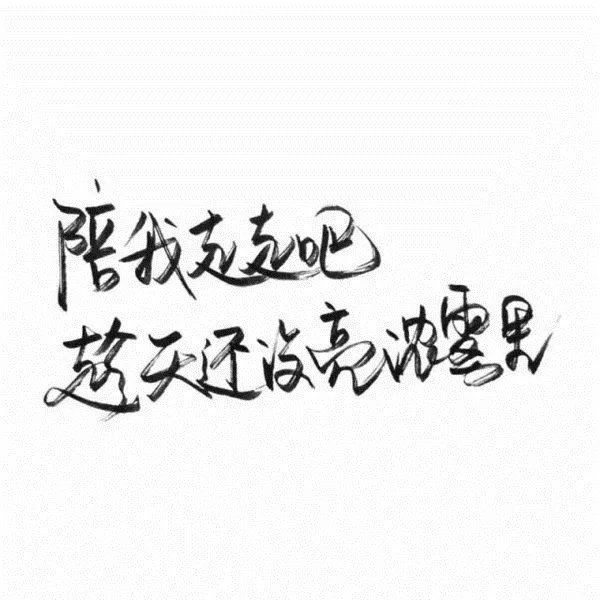 陪我走走吧
趁天还没亮浓雾里